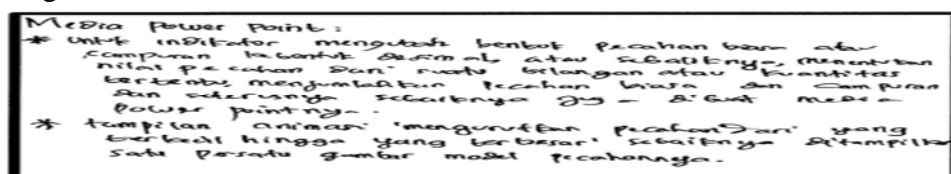 Media Power Point :
* Untuk indikator mengubah bentuk pecahan biasa atau
campuran ke bentuk desimal atau sebaliknya, menentukan
nilai pecahan dari suatu bilangan atau kuantitas
tertentu, menjumlahkan pecahan biasa dan campuran
dan seterusnya sebaiknya juga dibuat media
power pointnya.
* tampilan animasi 'mengurutkan pecahan dari yang
terkecil hingga yang terbesar' sebaiknya ditampilkan
satu persatu gambar model pecahannya.